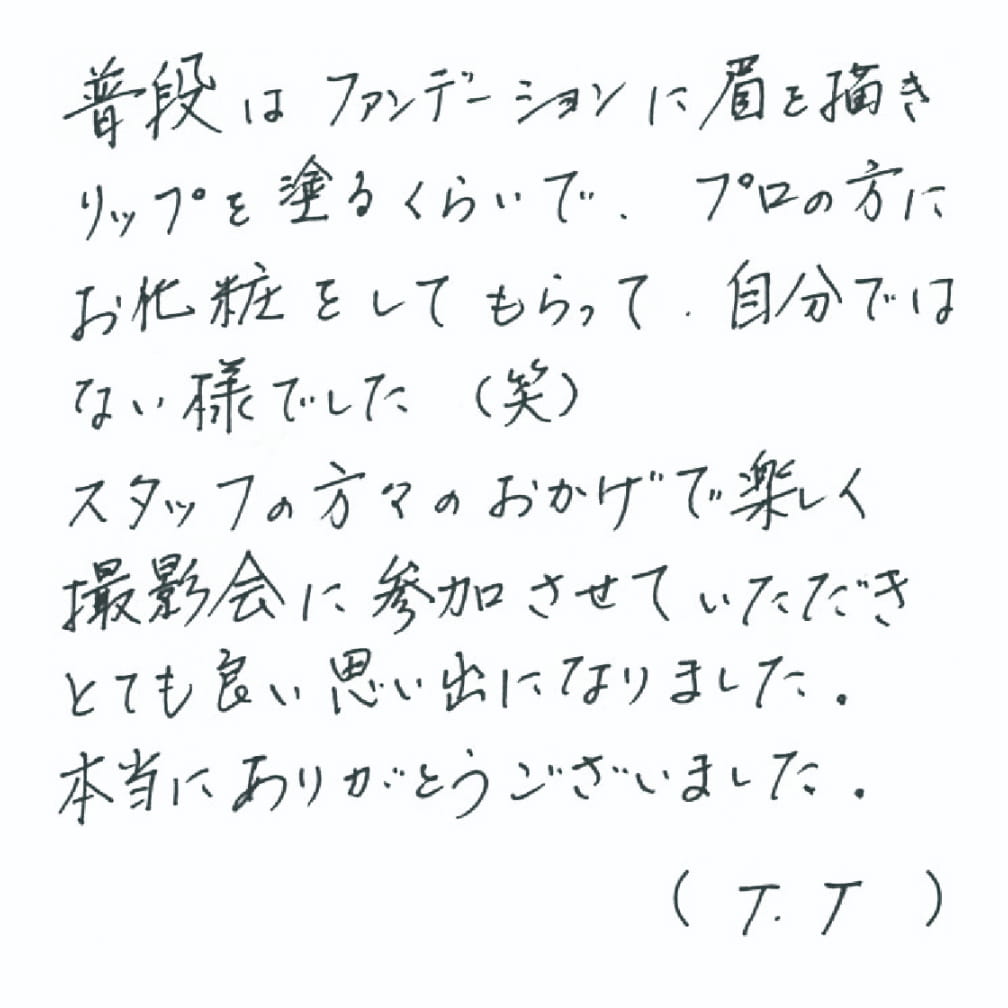 普段はファンデーションに眉を描き
リップを塗るくらいで、プロの方に
お化粧をしてもらって、自分では
ない様でした（笑）
スタッフの方々のおかげで楽しく
撮影会に参加させていただき
とても良い思い出になりました。
本当にありがとうございました。
（T.T）